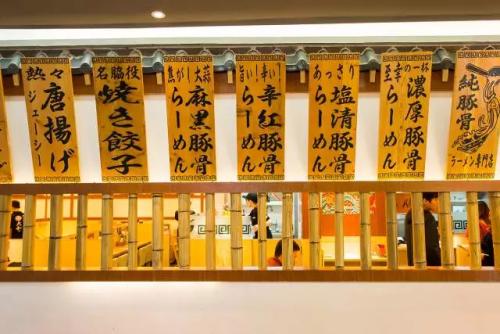 熱々
唐揚げ
ジューシー
名脇役
焼き餃子
焦がし大蒜
麻黒豚骨
らーめん
旨い!辛い!
辛紅豚骨
らーめん
あっさり
塩清豚骨
らーめん
至幸の一杯
濃厚豚骨
らーめん
純豚骨
ラーメン専門店